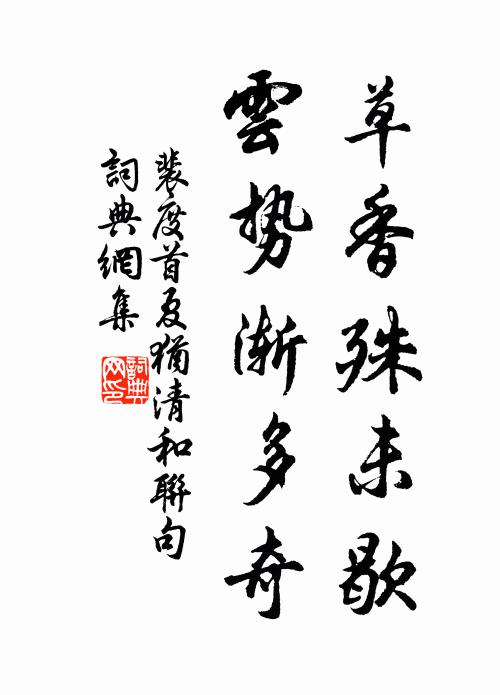 草香殊未歇
雲勢漸多奇
裴度首夏猶清和聯句
詞典網集
詞典
网印